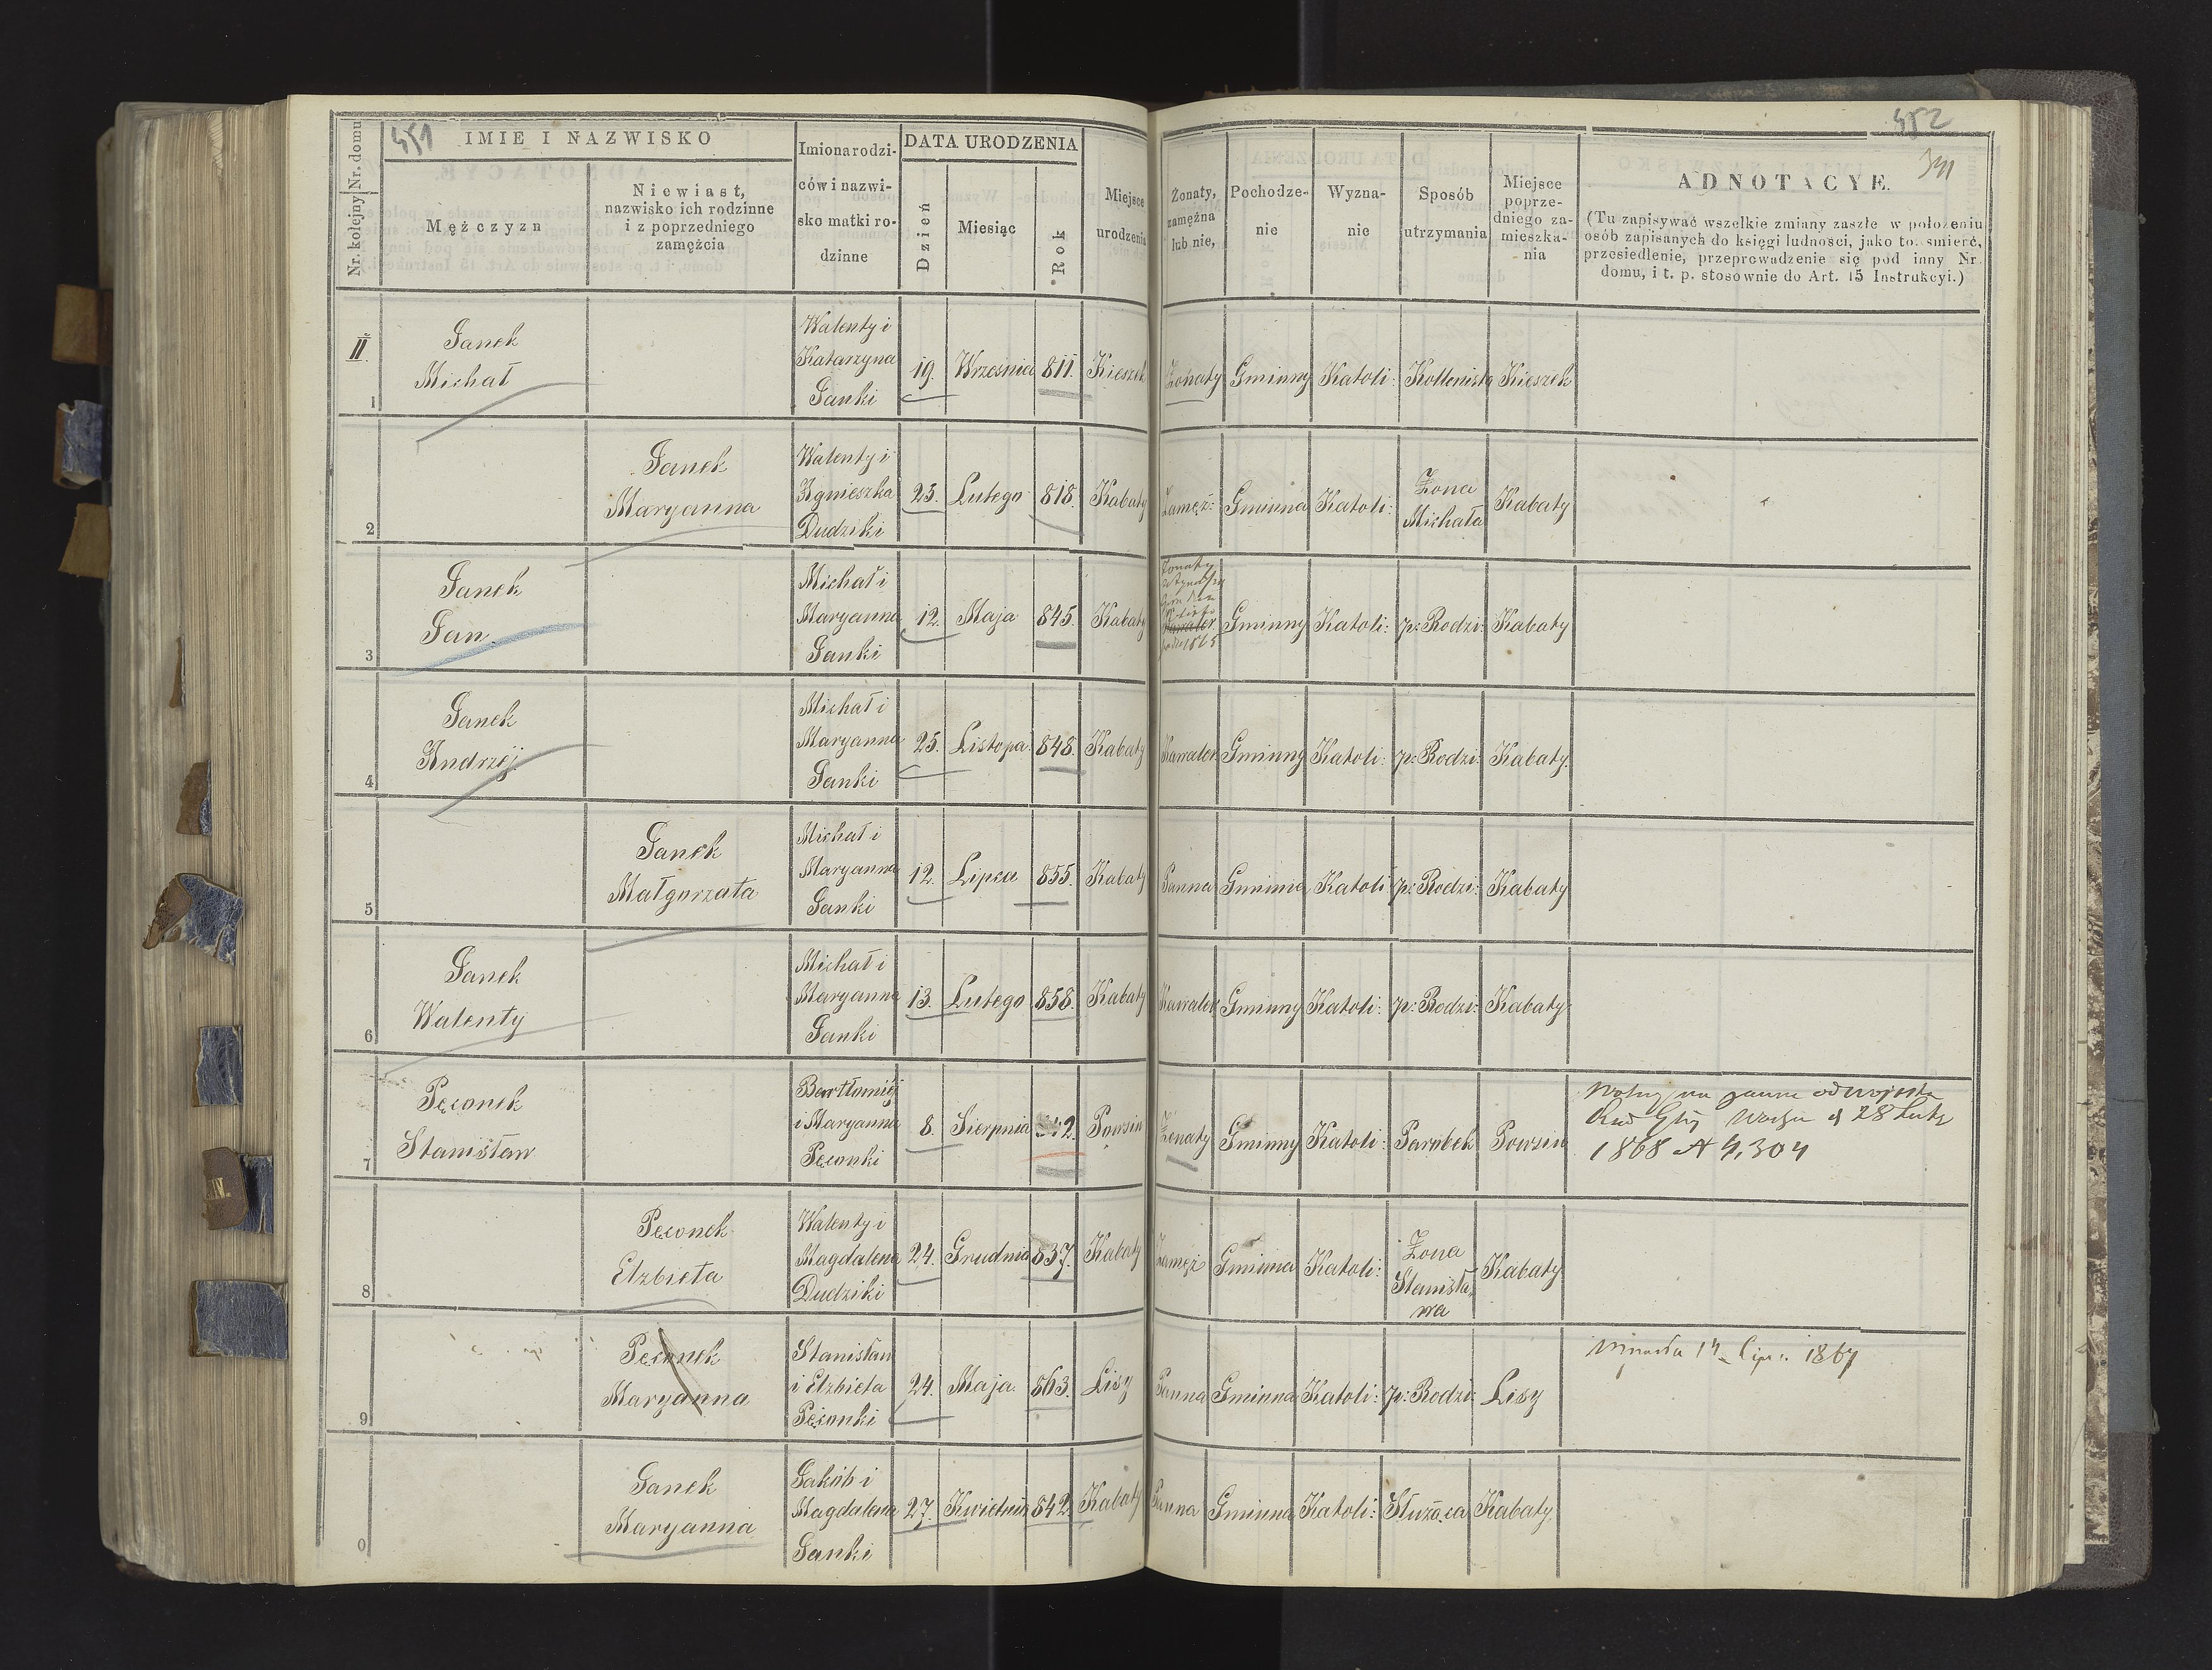 451
452
341
Nr. kolejny Nr. domu
IMIE I NAZWISKO
Mężczyzn
Niewiast,
nazwisko ich rodzinne
i z poprzedniego
zamęźcia
Imiona rodzi-
ców i nazwi-
sko matki ro-
dzinne
DATA URODZENIA
Dzień
Miesiąc
Rok
Miejsce
urodzenia
Żonaty,
zamężna
lub nie,
Pochodze-
nie
Wyzna-
nie
Sposób
utrzymania
Miejsce
poprze-
dniego za-
mieszka-
nia
ADNOTACYE.
(Tu zapisywać wszelkie zmiany zaszłe w położeniu
osób zapisanych do księgi ludności, jako to. śmierć,
przesiedlenie, przeprowadzenie się pod inny Nr.
domu, i t. p. stosównie do Art. 15 Instrukcyi.)
II.
1
Janek
Michał
Walenty i
Katarzyna
Janki
19. Września 811. Kieszek Żonaty Gminny Katoli: Kollonista Kieszek
2
Janek
Maryanna
Walenty i
Agnieszka
Dudziki
23. Lutego 818. Kabaty Zamęż: Gminna Katoli:
Żona
Michała
Kabaty
3
Janek
Jan
Michał i
Maryanna
Janki
12. Maja 845. Kabaty
Żonaty
Kawaler
1865
Gminny Katoli: p: Rodzi: Kabaty
4
Janek
Andrzej
Michał i
Maryanna
Janki
25. Listopa: 848. Kabaty Kawaler Gminny Katoli: p: Rodzi: Kabaty.
5
Janek
Małgorzata
Michał i
Maryanna
Janki
12. Lipca 855. Kabaty Panna Gminna Katoli p: Rodzi: Kabaty
6
Janek
Walenty
Michał i
Maryanna
Janki
13. Lutego 858. Kabaty Kawaler Gminny Katoli: p: Rodzi: Kabaty
7
Pęconek
Stanisław
Bartłomiéj
i Maryanna
Pęconki
8. Sierpnia 842. Powsin Żonaty Gminny Katoli: Parobek Powsin
Wolny na zawsze od wojska
28 Lut
1868 N 4,304
8
Pęconek
Elzbieta
Walenty i
Magdalena
Dudziki
24. Grudnia 837. Kabaty Zamęż Gminna Katoli:
Żona
Stanisła-
wa
Kabaty
9
Pęconek
Maryanna
Stanisław
i Elzbieta
Pęconki
24. Maja. 863. Lisy Panna Gminna Katoli: p: Rodzi: Lisy
Umarła 14 Lipc: 1867
0
Janek
Maryanna
Jakób i
Magdalena
Janki
27. Kwietnia 842. Kabaty Panna Gminna Katoli: Służąca Kabaty.